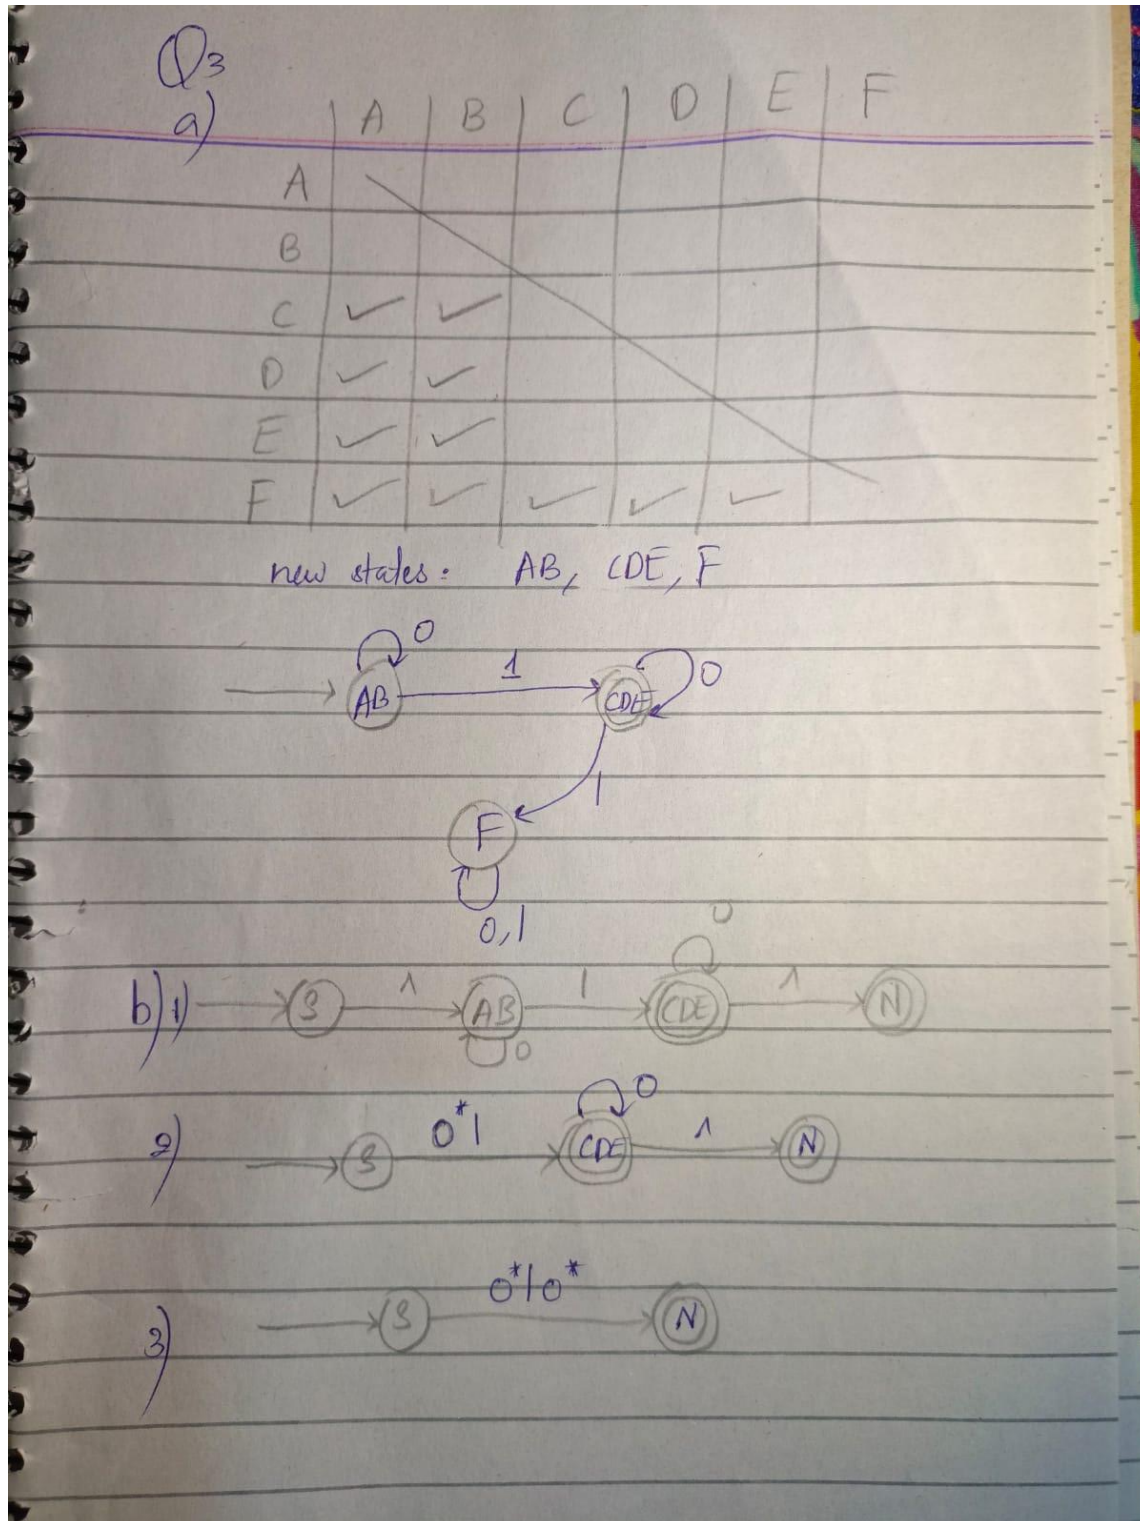 Q3
a) A B C D E F
A
B
C ✓ ✓
D ✓ ✓
E ✓ ✓
F ✓ ✓ ✓ ✓ ✓
new states: AB, CDE, F
0
AB 1 CDE 0
1
F
0,1
0
b) 1) S Λ AB 1 CDE Λ N
0
0
2) S 0*1 CDE Λ N
0*10*
3) S N